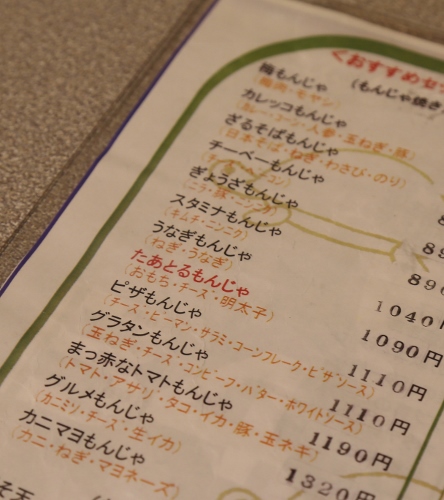 くおすすめセ
(もんじゃ焼き
梅もんじゃ
カレッコもんじゃ
(カレー・コーン・人参・玉ねぎ・豚)
ざるそばもんじゃ
(日本そば・ねぎ・わさび・のり)
チーベーもんじゃ
ぎょうざもんじゃ
(ニラ・豚・ニンニク)
スタミナもんじゃ
(キムチ・ニンニク)
うなぎもんじゃ
(ねぎ・うなぎ)
たあとるもんじゃ
(おもち・チーズ・明太子)
1040円
ピザもんじゃ
(チーズ・ピーマン・サラミ・コーンフレーク・ピザソース)
1090円
グラタンもんじゃ
(玉ねぎ・チーズ・コンビーフ・バター・ホワイトソース)
1110円
まっ赤なトマトもんじゃ
(トマト・アサリ・タコ・イカ・豚・玉ネギ)
1110円
グルメもんじゃ
(カニミソ・チーズ・生イカ)
1190円
カニマヨもんじゃ
(カニ・ねぎ・マヨネーズ)
1320